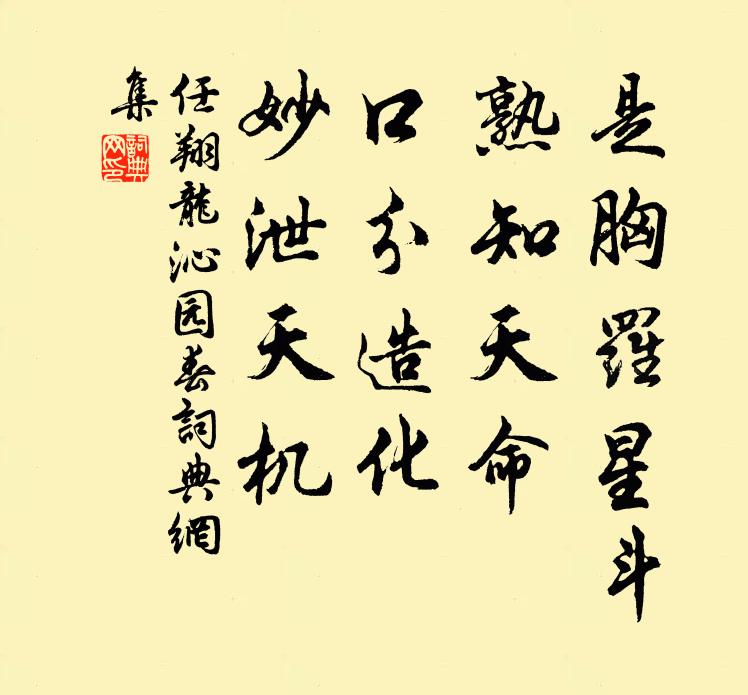 是胸羅星斗
熟知天命
口分造化
妙泄天机
任翔龍沁园春詞典網
集
詞典
网印